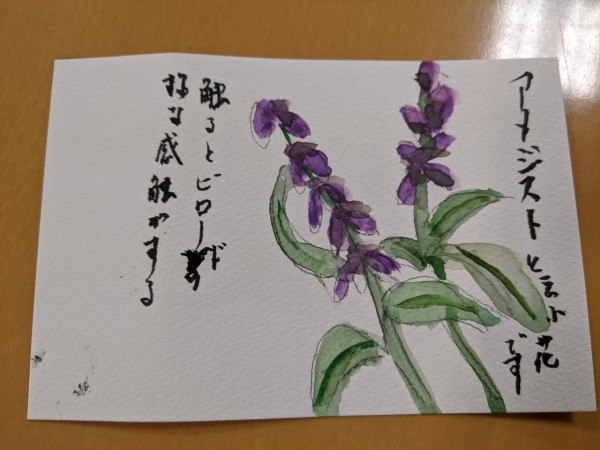 アメジストと云ふ花
です
触るとビロード
様な感触がする